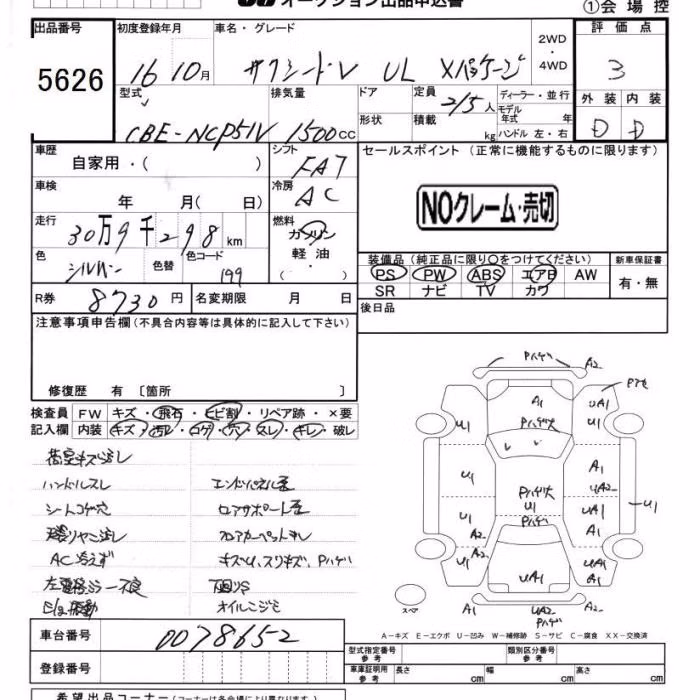 オークション出品申込書
①会場控
出品番号
5626
初度登録年月
16 10月
車名・グレード
サクシードV UL Xパッケージ
2WD
・
4WD
評価点
3
外装 内装
D D
型式
CBE-NCP51V
排気量
1500cc
ドア
形状
定員
2/5人
積載
kg
ディーラー・並行
モデル
年式 年
ハンドル 左・右
車歴
自家用・( )
シフト
FAT
車検
年 月( 日)
冷房
AC
走行
30万9千298km
燃料
ガソリン
軽油
・
( )
色
シルバー
色替
色コード
199
R券
8730円
名変期限 月 日
セールスポイント (正常に機能するものに限ります)
NOクレーム・売切
装備品 (純正品に限り○をつけてください)
PS PW ABS エアB AW
SR ナビ TV カワ
新車保証書
有・無
後日品
注意事項申告欄(不具合内容等は具体的に記入して下さい)
修復歴 有〔箇所 〕
検査員
記入欄
FW キズ・飛石・ヒビ割・リペア跡・×要
内装 キズ・汚レ・コゲ・穴・スレ・キレ・破レ
荷室キズ汚レ
ハンドルスレ
シートコゲ穴
AC冷えず
エンドパネル歪
ロアサポート歪
フロアカーペットキレ
キズU、スリキズ、Pハゲ
下回りS
オイルニジミ
Pハゲ A2
A1
Pハゲ大
UA1
Pアセ
U1 U1
U1 A1
UA2
Pハゲ大
U1
Pハゲ
UA1
U1
U1
A1
A2 A2
U1 UA1
A1
UA1
A1
UA2
Pハゲ
A2
スペア
A-キズ E-エクボ U-凹み W-補修跡 S-サビ C-腐食 XX-交換済
車台番号
0078652
登録番号
型式指定番号
参考
類別区分番号
参考
車庫証明用
参考
長さ cm
幅 cm
高さ cm
希望出品コーナー(コーナーは各会場により異なります)